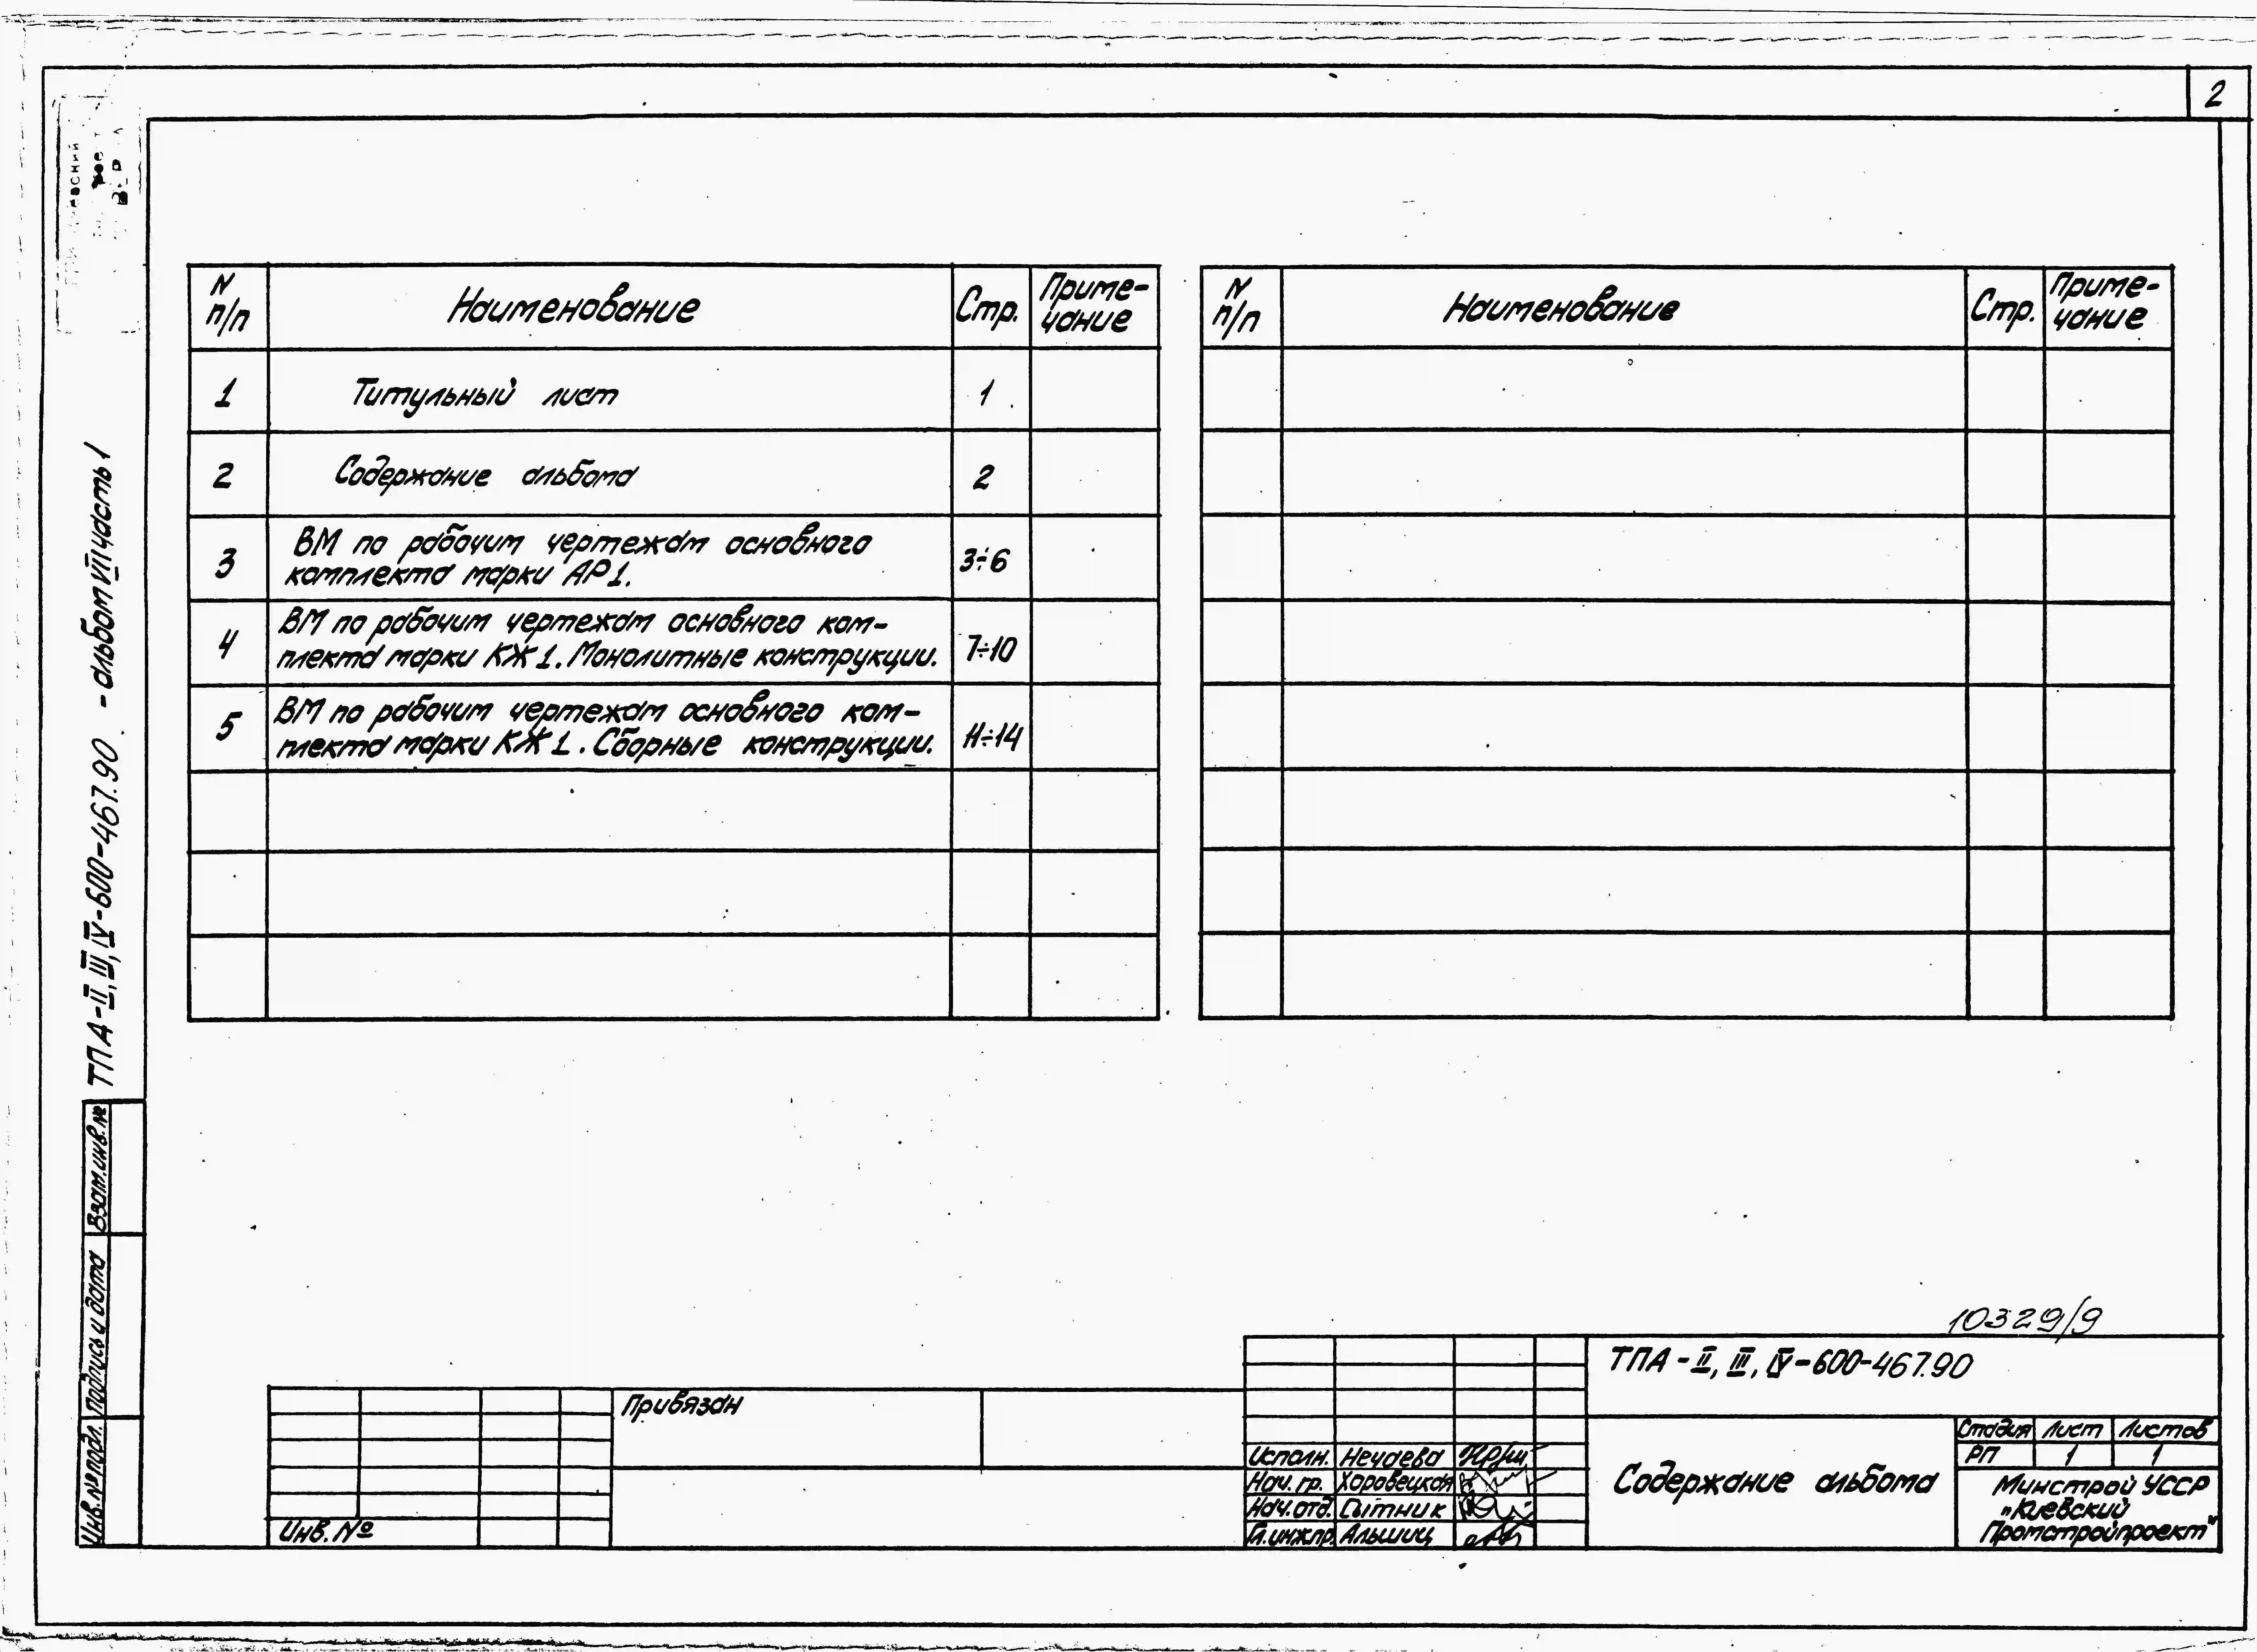 2
N п/п Наименование Стр. Приме-
чание
1 Титульный лист 1
2 Содержание альбома 2
3 ВМ по рабочим чертежам основного
комплекта марки АР1. 3÷6
4 ВМ по рабочим чертежам основного ком-
плекта марки КЖ1. Монолитные конструкции. 7÷10
5 ВМ по рабочим чертежам основного ком-
плекта марки КЖ1. Сборные конструкции. 11÷14
N п/п Наименование Стр. Приме-
чание
ТПА-II, III, IV-600-467.90. -альбом VII часть 1
Взам.инв.№
Подпись и дата
Инв.№ подл.
10329/9
ТПА-II, III, IV-600-467.90
Привязан
Инв. №
Исполн. Нечаева
Нач. гр. Хоровецкая
Нач. отд. Сытник
Гл. инж.пр. Альшиц
Содержание альбома
Стадия Лист Листов
РП 1 1
Минстрой УССР
"Киевский
Промстройпроект"